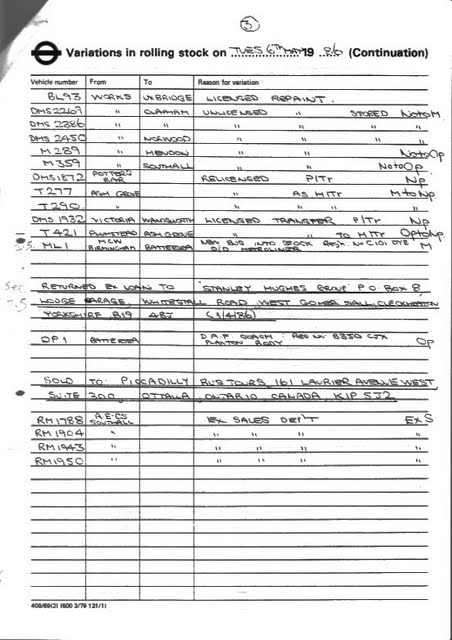 3
Variations in rolling stock on TUES 6TH MAY 19 86 (Continuation)
Vehicle number From To Reason for variation
BL93 WORKS UXBRIDGE LICENSED REPAINT.
DMS2269 " CLAPHAM UNLICENSED " STORED NotoM
DMS 2386 " " " " "
DMS 2450 " NORWOOD " " "
M289 " HENDON " " NotoOp
M359 " SOUTHALL " " NotoOp
DMS1872 POTTERS BAR RELICENSED P/Tr Np
T277 ASH GROVE " AS H/Tr MtoNp
T290 " " " "
DMS 1932 VICTORIA WANDSWORTH LICENSED TRANSFER P/Tr Np
T421 PLUMSTEAD ASH GROVE " " TO H/Tr OptoNp
ML1 MCW BIRMINGHAM BATTERSEA NEW BUS INTO STOCK Regn. No C101 D/D METROLINER M
RETURNED EX LOAN TO "STANLEY HUGHES GROUP" P O BOX 8,
LODGE GARAGE, WHITEHALL ROAD WEST GOMERSALL, CLECKHEATON
YORKSHIRE B19 4BJ (1/4/86)
DP1 BATTERSEA D.A.F COACH: REG No B350 PLAXTON BODY Op
SOLD TO: PICCADILLY BUS TOURS, 161 LAURIER AVENUE WEST,
SUITE 300, OTTAWA, ONTARIO, CANADA, K1P 5J2
RM1788 A.E.C'S SOUTHALL EX SALES DEP'T Ex S
RM1904 " " " "
RM1943 " " " "
RM1950 " " " "
408/89(2) (600 3/79 121/1)